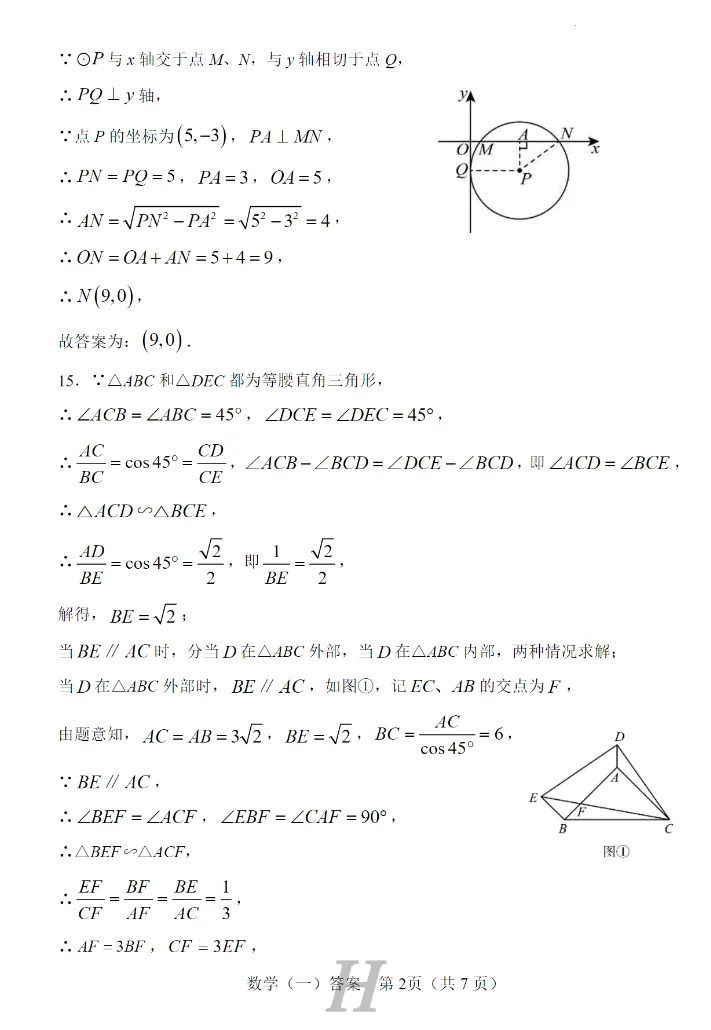 ∵ ⊙P 与 x 轴交于点 M、N，与 y 轴相切于点 Q，
∴ PQ ⊥ y 轴，
∵点 P 的坐标为(5,−3)，PA ⊥ MN，
∴ PN = PQ = 5，PA = 3，OA = 5，
∴ AN = √(PN² − PA²) = √(5² − 3²) = 4，
∴ ON = OA + AN = 5 + 4 = 9，
∴ N(9,0)，
故答案为：(9,0)．
y
O
M
A
N
x
Q
P
15．∵△ABC 和△DEC 都为等腰直角三角形，
∴ ∠ACB = ∠ABC = 45°，∠DCE = ∠DEC = 45°，
∴ AC/BC = cos 45° = CD/CE，∠ACB − ∠BCD = ∠DCE − ∠BCD，即 ∠ACD = ∠BCE，
∴ △ACD ∽△BCE，
∴ AD/BE = cos 45° = √2/2，即 1/BE = √2/2，
解得，BE = √2；
当 BE // AC 时，分当 D 在△ABC 外部，当 D 在△ABC 内部，两种情况求解；
当 D 在△ABC 外部时，BE // AC，如图①，记 EC、AB 的交点为 F，
由题意知，AC = AB = 3√2，BE = √2，BC = AC/cos 45° = 6，
∵ BE // AC，
∴ ∠BEF = ∠ACF，∠EBF = ∠CAF = 90°，
∴△BEF ∽△ACF，
∴ EF/CF = BF/AF = BE/AC = 1/3，
∴ AF = 3BF，CF = 3EF，
D
A
E
F
B
C
图①
数学（一）答案　第 2页（共 7 页）
H